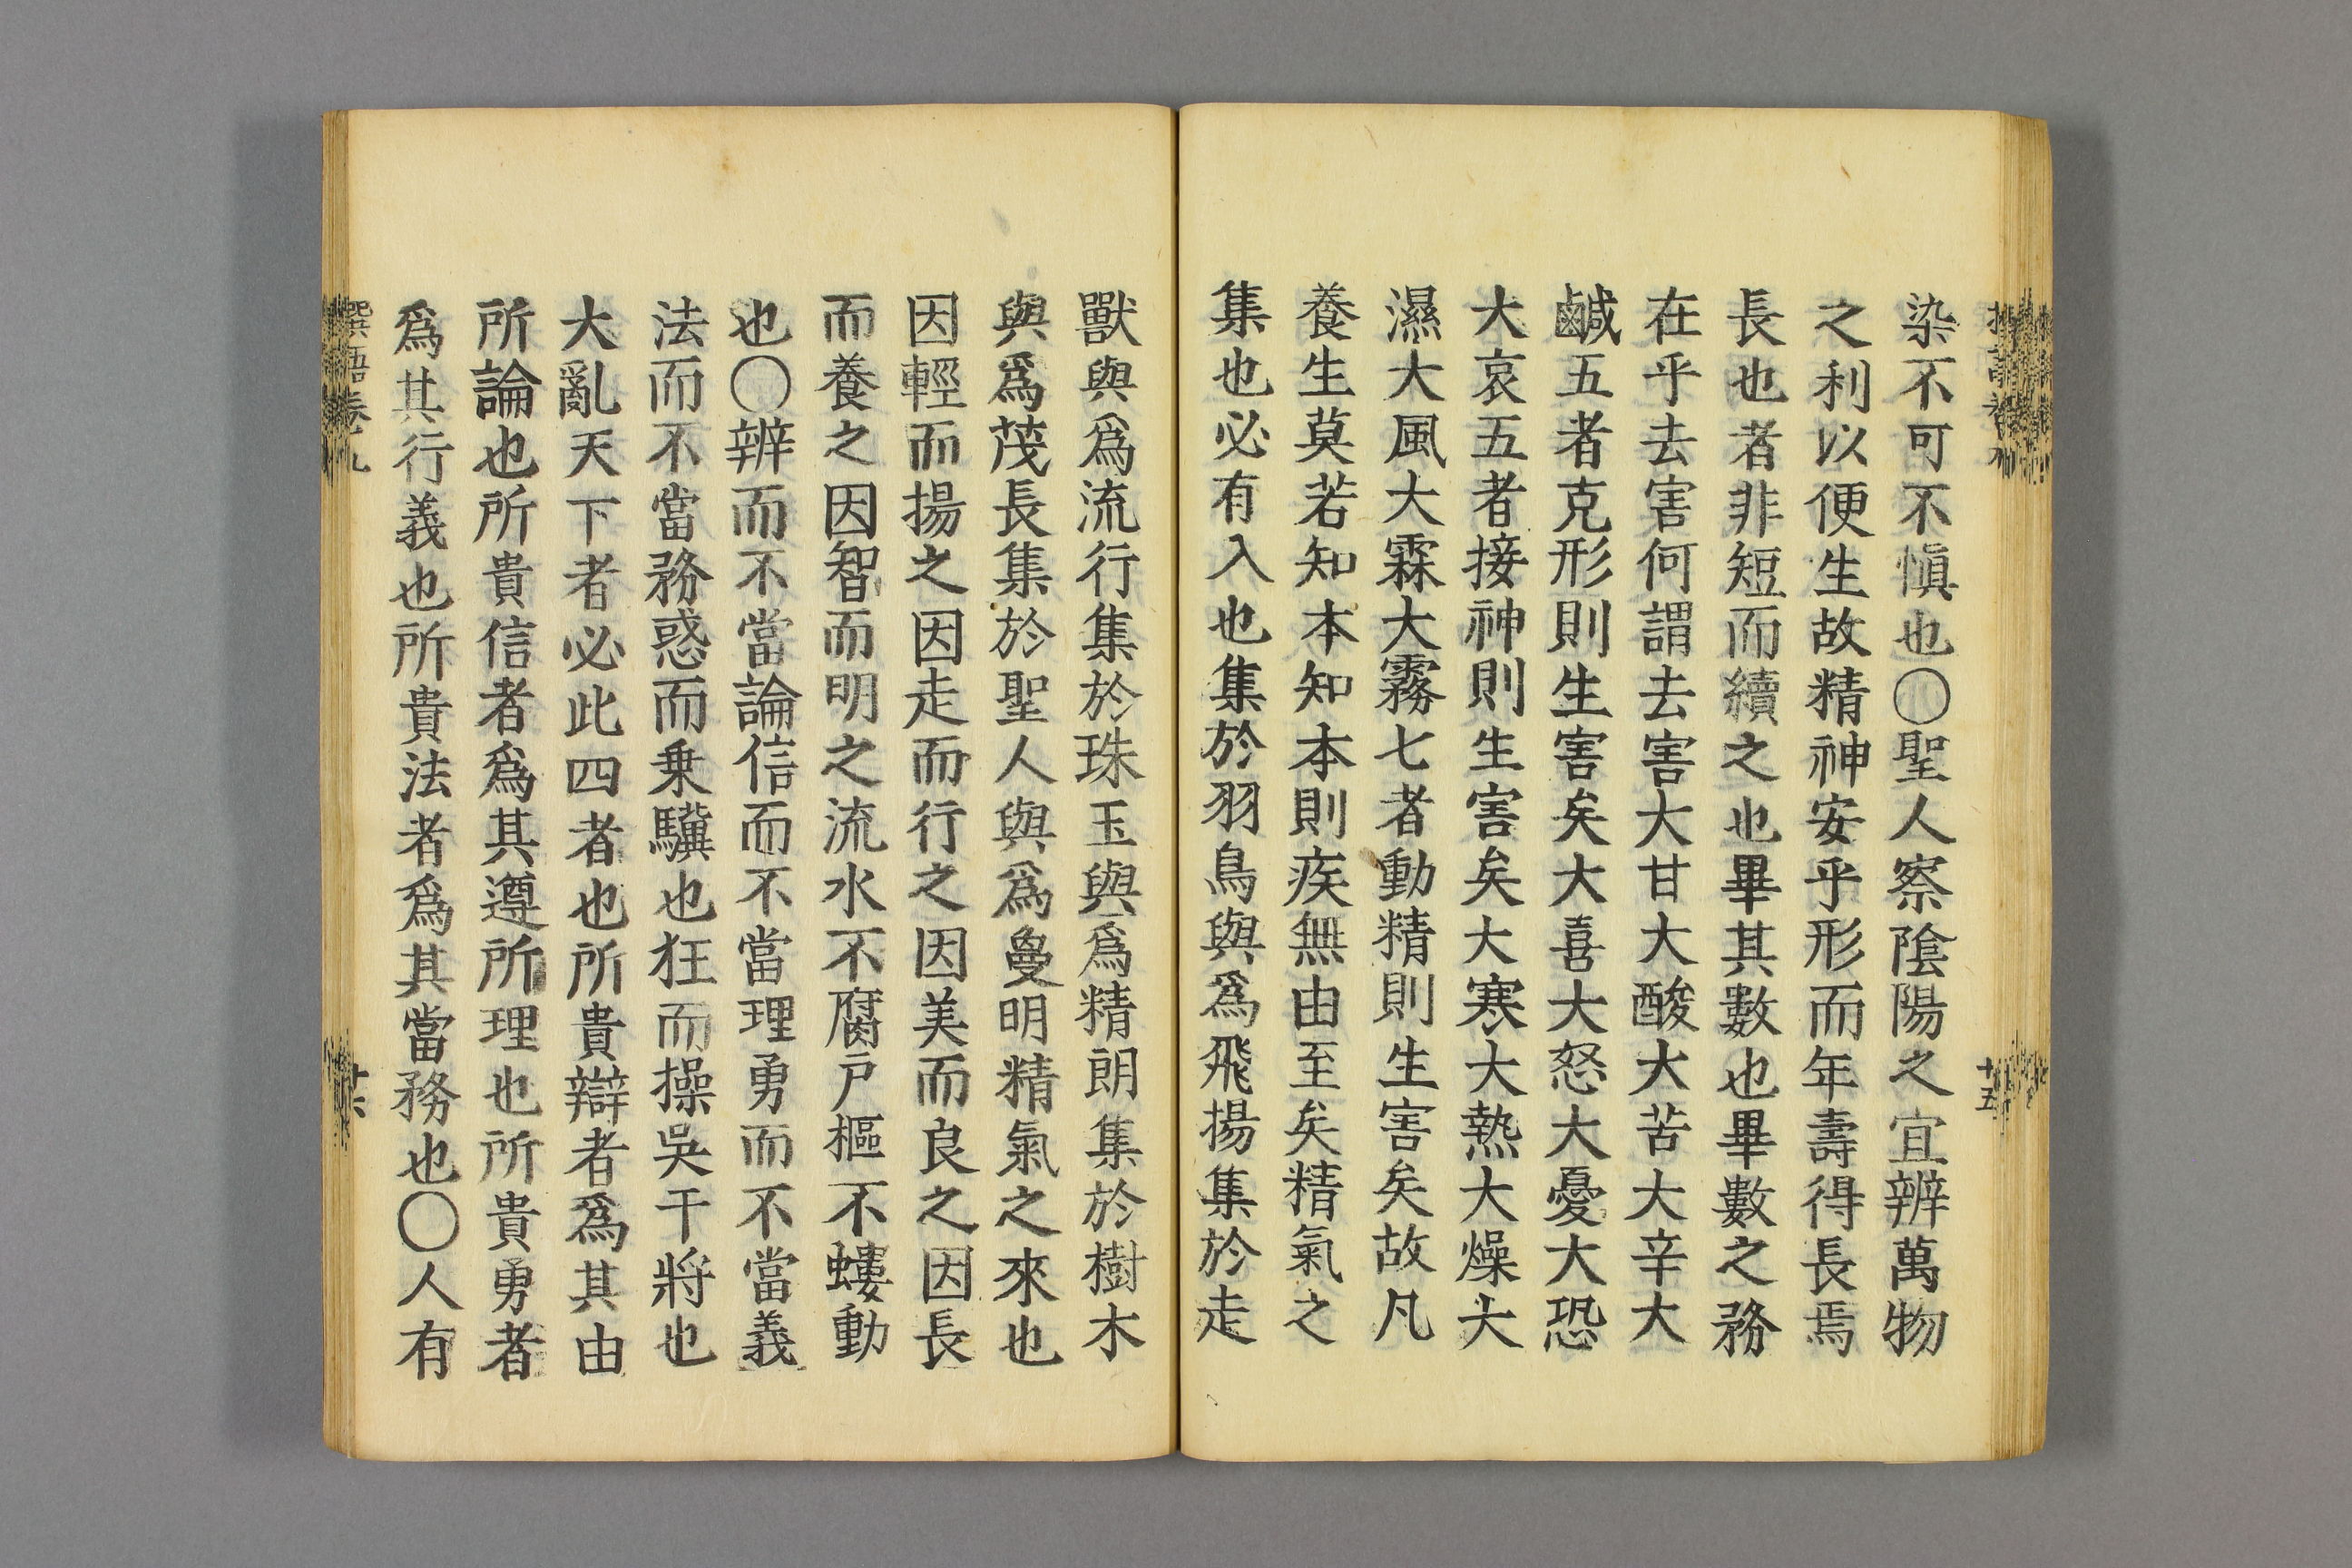 染不可不愼也〇聖人察陰陽之宜辨萬物
之利以便生故精神安乎形而年壽得長焉
長也者非短而續之也畢其數也畢數之務
在乎去害何謂去害大甘大酸大苦大辛大
鹹五者克形則生害矣大喜大怒大憂大恐
大哀五者接神則生害矣大寒大熱大燥大
濕大風大霖大霧七者動精則生害矣故凡
養生莫若知本知本則疾無由至矣精氣之
集也必有入也集於羽鳥與爲飛揚集於走
獸與爲流行集於珠玉與爲精朗集於樹木
與爲茂長集於聖人與爲敻明精氣之來也
因輕而揚之因走而行之因美而良之因長
而養之因智而明之流水不腐戶樞不螻動
也〇辨而不當論信而不當理勇而不當義
法而不當務惑而乗驥也狂而操吳干將也
大亂天下者必此四者也所貴辯者爲其由
所論也所貴信者爲其遵所理也所貴勇者
爲其行義也所貴法者爲其當務也〇人有
語卷九
十六
十五